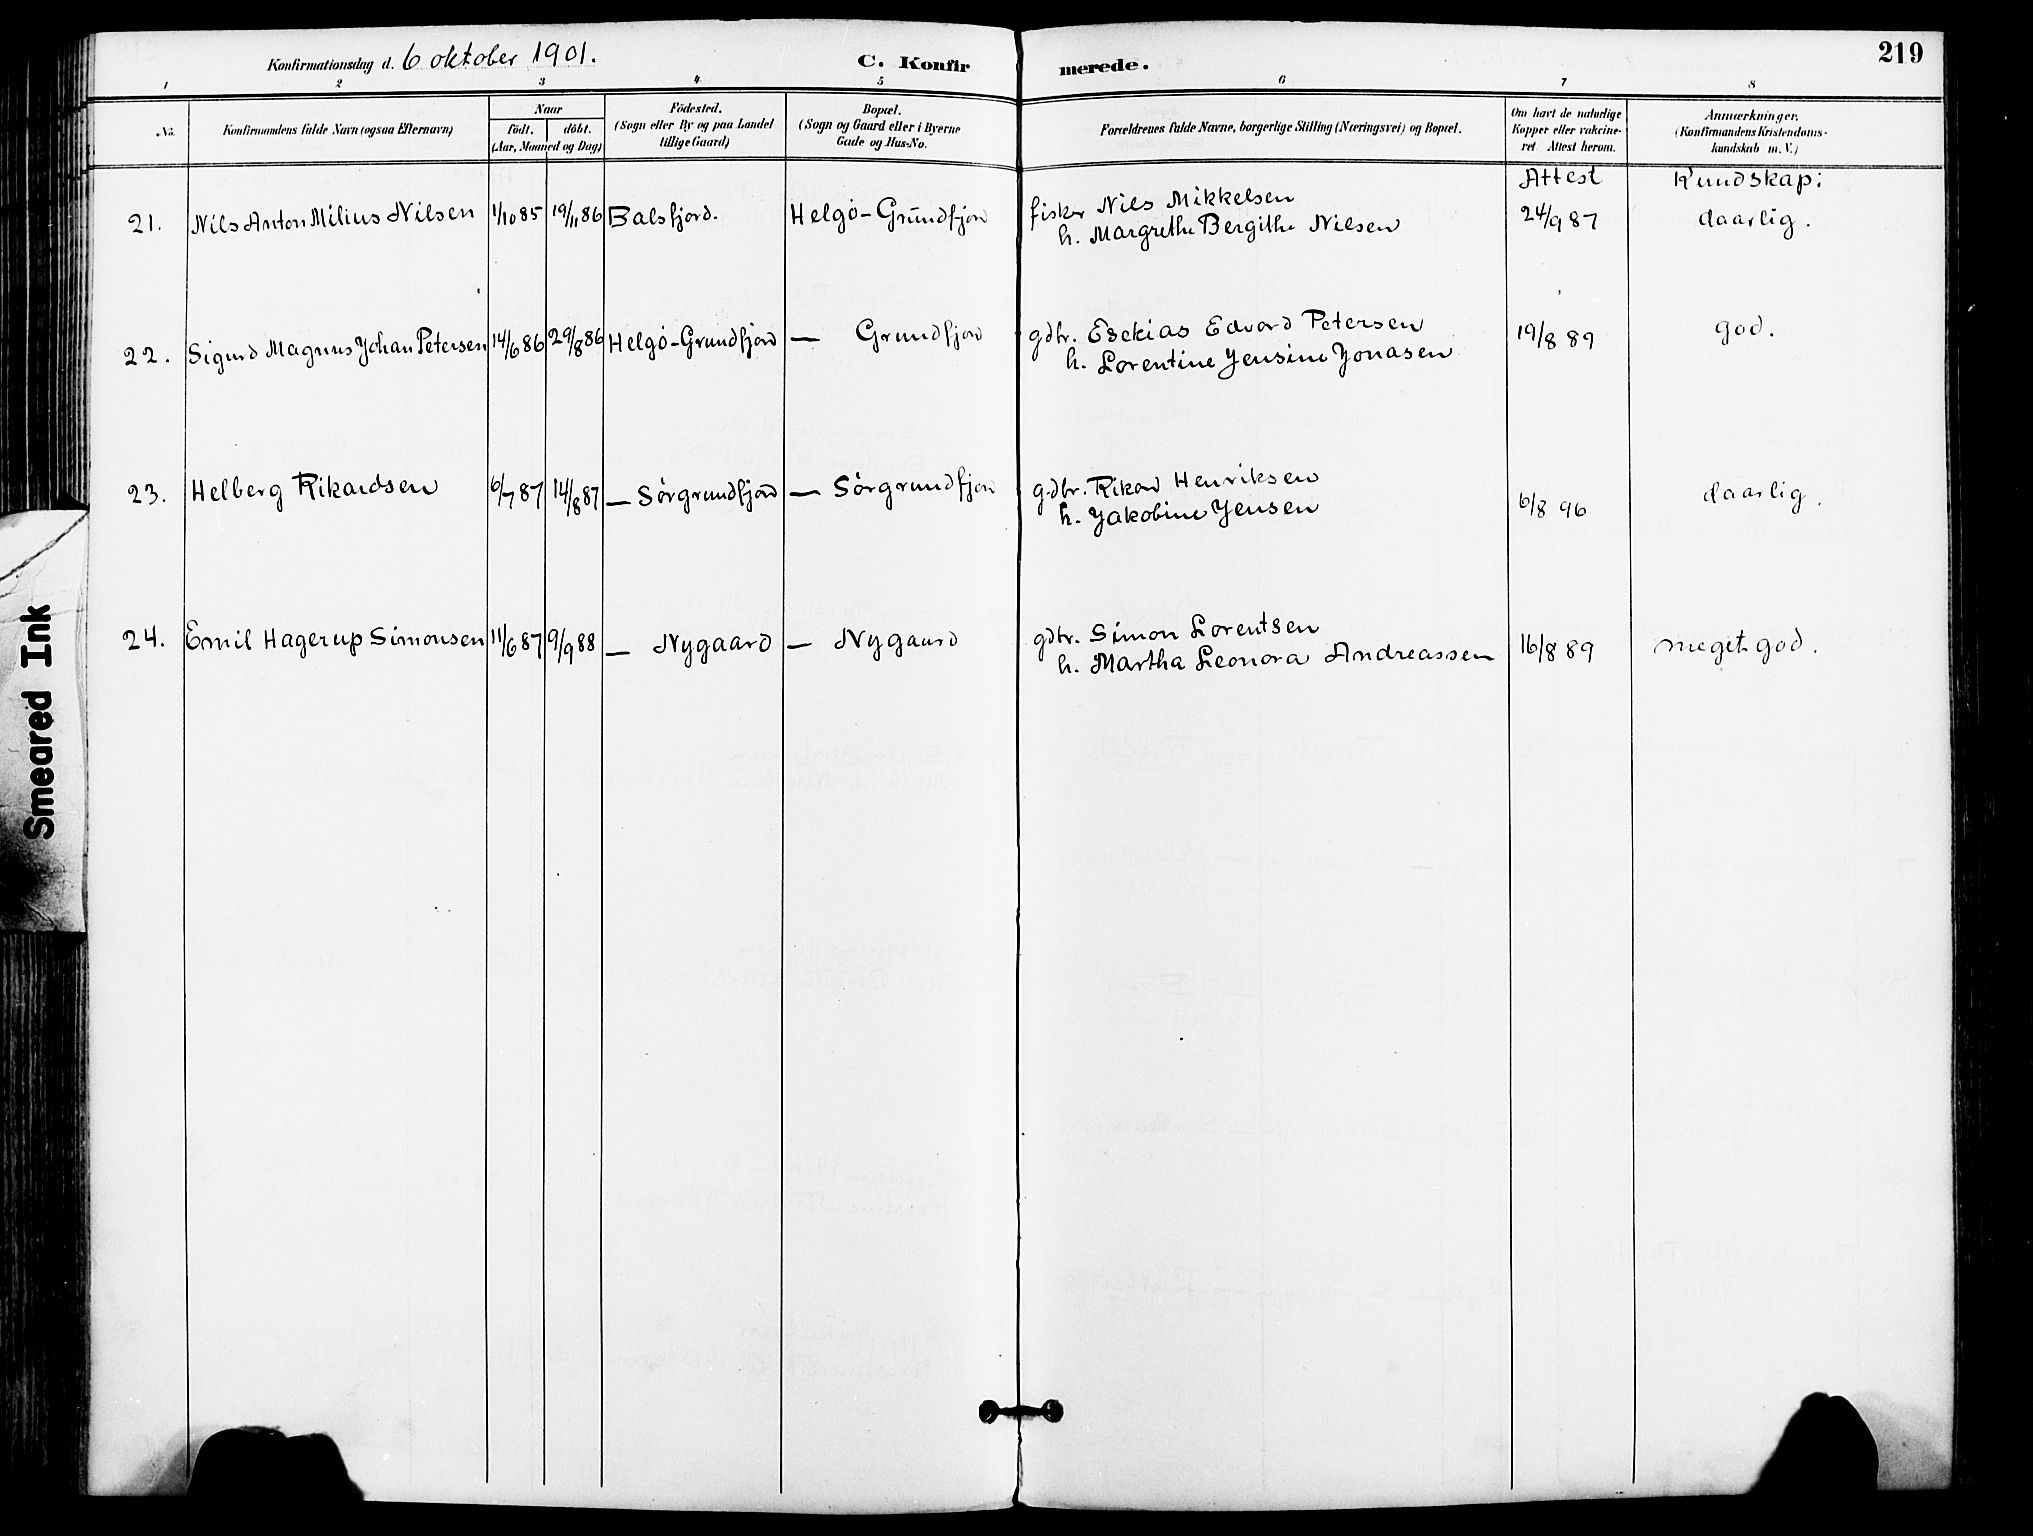 Konfirmationsdag d. 6 oktober 1901.
C. Konfirmerede.
219
1 2 3 4 5 6 7 8
No.
Konfirmandens fulde Navn (ogsaa Efternavn)
Naar
födt. döbt.
(Aar, Maaned og Dag)
Födested.
(Sogn eller By og paa Landet
tillige Gaard)
Bopæl.
(Sogn og Gaard eller i Byerne
Gade og Hus-No.
Forældrenes fulde Navne, borgerlige Stilling (Næringsvei) og Bopæl.
Om havt de naturlige
Kopper eller vakcine-
ret. Attest herom.
Anmærkninger.
(Konfirmandens Kristendoms-
kundskab m. V.)
Attest Kundskap:
21. Nils Anton Milius Nilsen 1/10 85 19/11 86 Balsfjord. Helgö-Grundfjord fisker Nils Mikkelsen 24/9 87 daarlig.
h. Margrethe Bergithe Nilsen
22. Sigurd Magnus Johan Petersen 14/6 86 29/8 86 Helgö-Grundfjord — Grundfjord gdbr. Esekias Edvard Petersen 19/8 89 god.
h. Lorentine Jensine Jonasen
23. Helberg Rikardsen 6/7 87 14/8 87 — Sörgrundfjord — Sörgrundfjord gdbr. Rikard Henriksen 6/8 96 daarlig.
h. Jakobine Jensen
24. Emil Hagerup Simonsen 11/6 87 9/9 88 — Nygaard — Nygaard gdbr. Simon Lorentsen 16/8 89 meget god.
h. Martha Leonora Andreassen
Smeared Ink